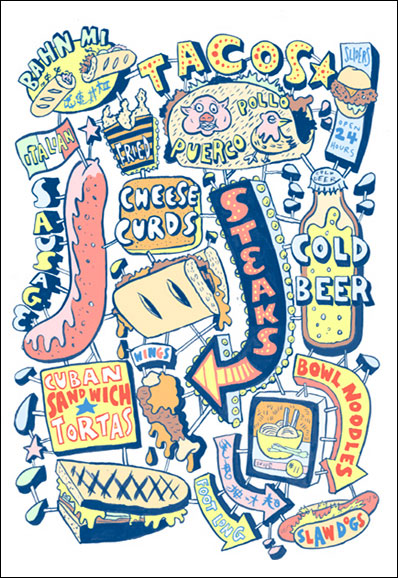 BAHN-MI
TACOS
SLIDERS
OPEN
24
HOURS
POLLO
PUERCO
FRIED!
ITALIAN
SAUSAGE
CHEESE
CURDS
STEAKS
COLD
BEER
COLD
BEER
WINGS
CUBAN
SANDWICH
TORTAS
BOWL NOODLES
FOOT LONG
SLAW DOGS